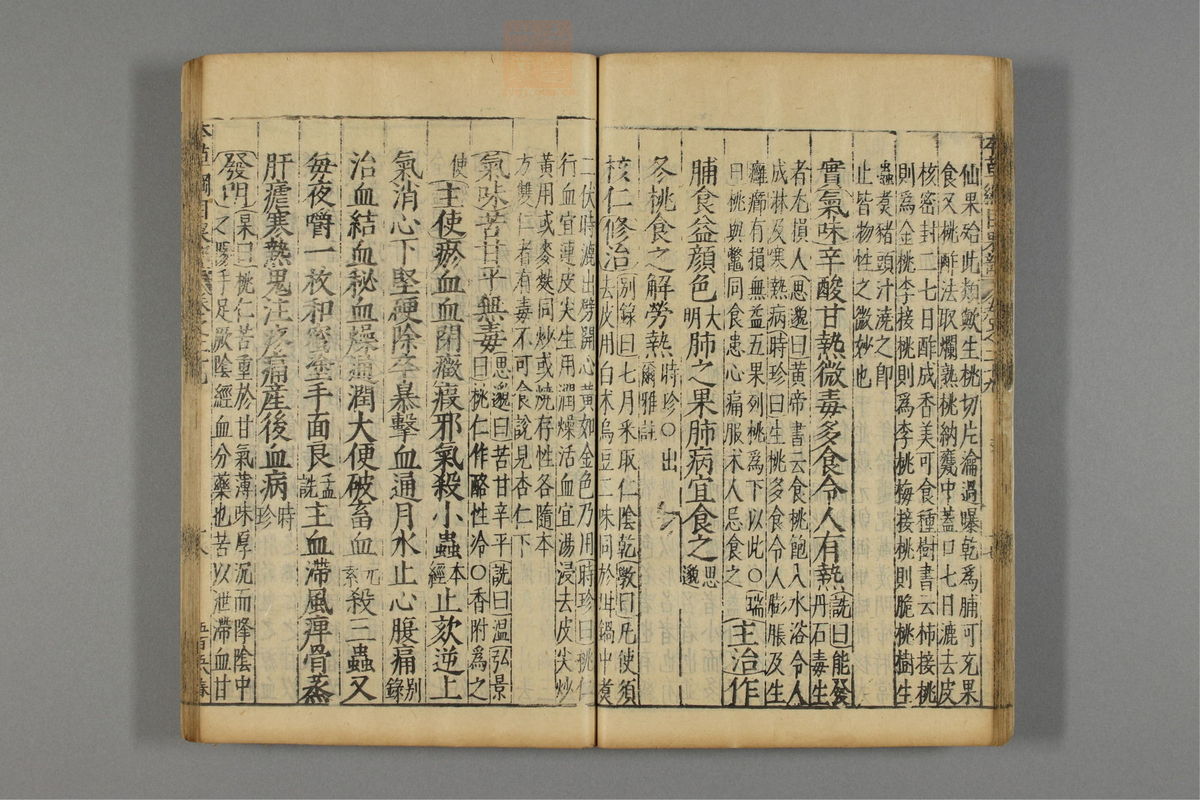 仙果殆此類歟生桃切片瀹過曝乾爲脯可充果
食又桃酢法取爛熟桃納甕中蓋口七日漉去皮
核密封二七日酢成香美可食種樹書云柿接桃
則爲金桃李接桃則爲李桃梅接桃則脆桃樹生
蟲煑猪頭汁澆之即
止皆物性之微妙也
實氣味辛酸甘熱微毒多食令人有熱詵曰能發丹石毒生
者尤損人思邈曰黃帝書云食桃飽入水浴令人
成淋及寒熱病時珍曰生桃多食令人膨脹及生
癰癤有損無益五果列桃爲下以此○瑞
曰桃與鼈同食患心痛服术人忌食之主治作
脯食益顏色大明肺之果肺病宜食之思邈
冬桃食之解勞熱時珍○出爾雅註
核仁修治別錄曰七月釆取仁陰乾斆曰凡使須去皮用白术烏豆二味同於坩鍋中煑
二伏時漉出劈開心黃如金色乃用時珍曰桃仁
行血宜連皮尖生用潤燥活血宜湯浸去皮尖炒
黃用或麥麩同炒或燒存性各隨本
方雙仁者有毒不可食說見杏仁下
氣味苦甘平無毒思邈曰苦甘辛平詵曰溫弘景曰桃仁作酪性冷○香附爲之
使主使瘀血血閉癥瘕邪氣殺小蟲本經止欬逆上
氣消心下堅硬除卒暴擊血通月水止心腹痛別錄
治血結血秘血燥通潤大便破畜血元素殺三蟲又
每夜嚼一枚和蜜塗手面良孟詵主血滯風痹骨蒸
肝瘧寒熱鬼注疼痛產後血病時珍
發明杲曰桃仁苦重於甘氣薄味厚沉而降陰中
之陽手足厥陰經血分藥也苦以泄滯血甘
本草綱目果部
卷之二十九